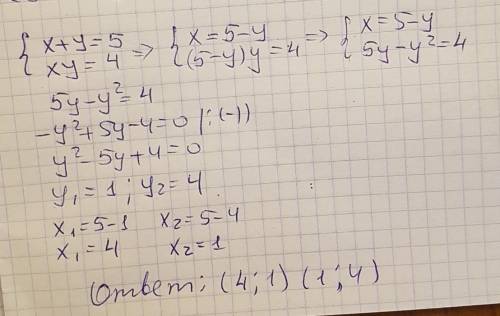 { x+y=5 xy=4 => { x=5-y (5-y)y=4 => { x=5-y 5y-y²=4
5y-y²=4
-y²+5y-4=0 |:(-))
y²-5y+4=0
y₁=1; y₂=4
x₁=5-1 x₂=5-4
x₁=4 x₂=1
Ответ: (4;1) (1;4)